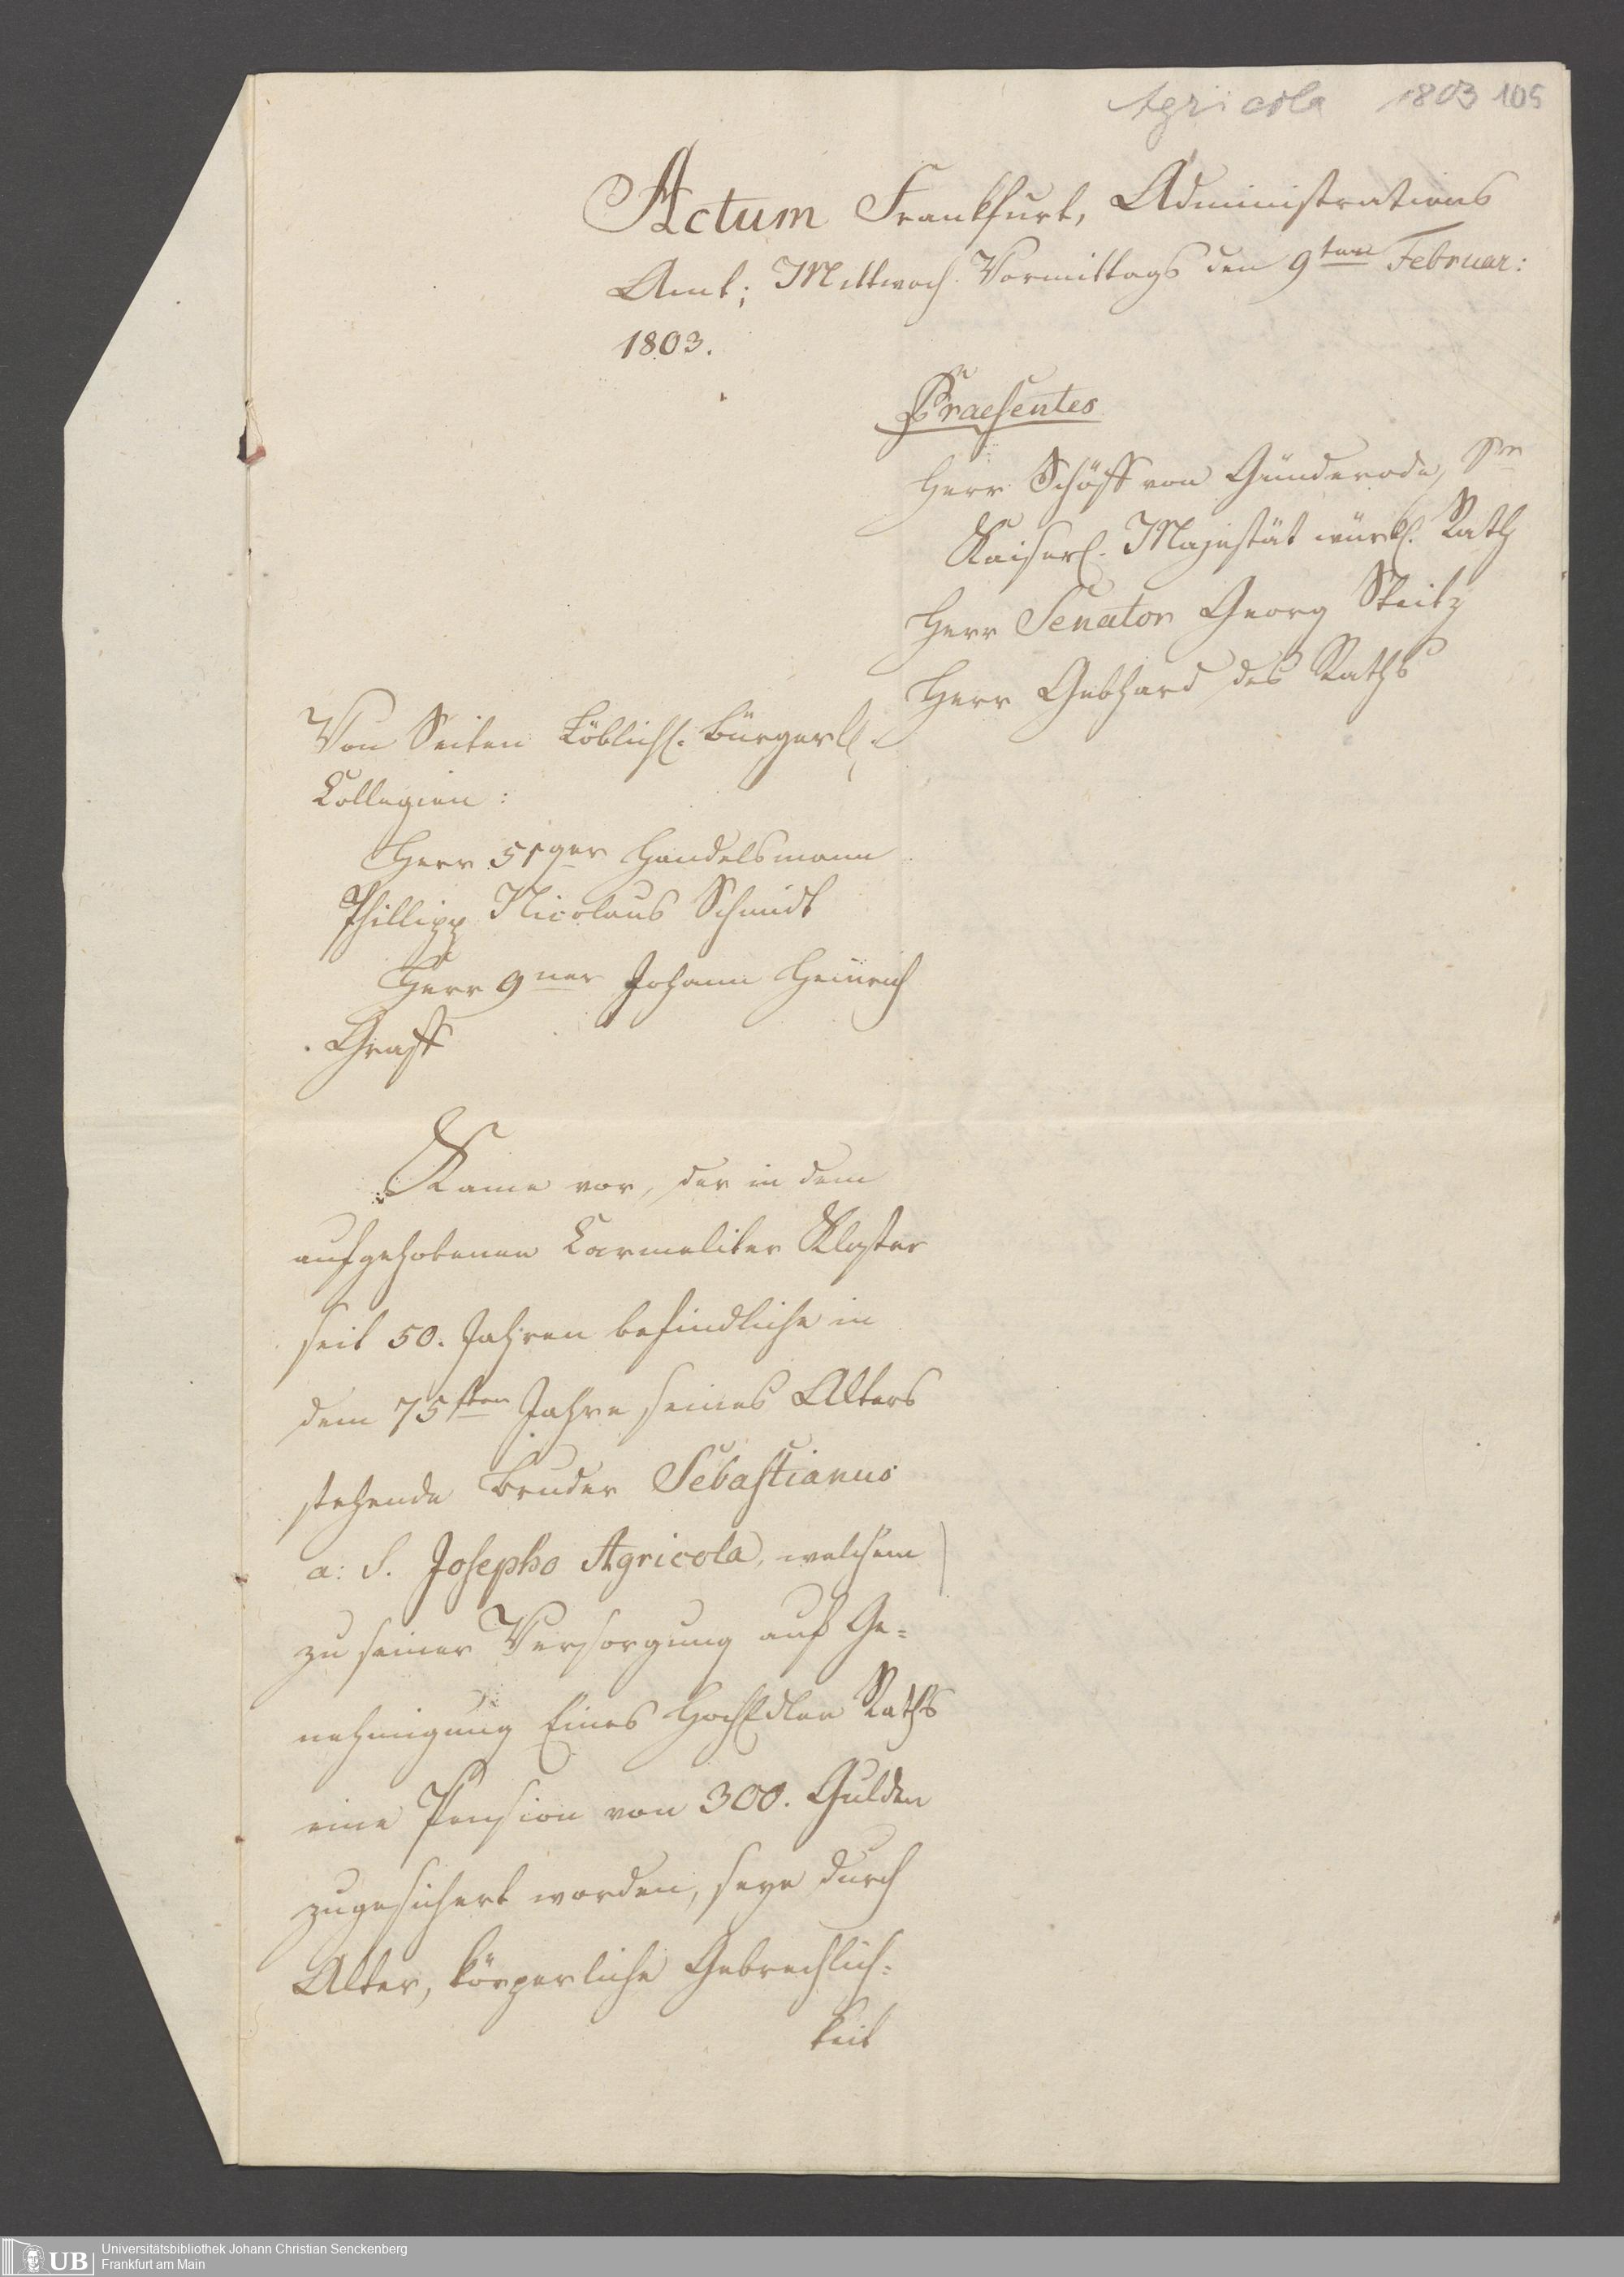 Agricola 1803 105
Actum Frankfurt, Administrations
Amt; Mittwoch Vormittags den 9ten Februar:
1803.
Praesentes
Herr Schöff von Günderode, Sr
Kaiserl. Majestät würkl. Rath
Herr Senator Georg Steitz
Herr Gebhard des Raths
Von Seiten Löblich. bürgerl.
Collegien:
Herr 51ger Handelsmann
Phillipp Nicolaus Schmidt
Herr 9ner Johann Heinrich
Graff
Kame vor, der in dem
aufgehobenen Carmeliter Kloster
seit 50. Jahren befindliche in
dem 75sten Jahre seines Alters
stehende Bruder Sebastianus
a: S. Josepho Agricola, welchem
zu seiner Versorgung auf Ge=
nehmigung Eines HochEdlen Raths
eine Pension von 300. Gulden
zugesichert worden, seye durch
Alter, körperliche Gebrechlich=
keit
UB Universitätsbibliothek Johann Christian Senckenberg
Frankfurt am Main